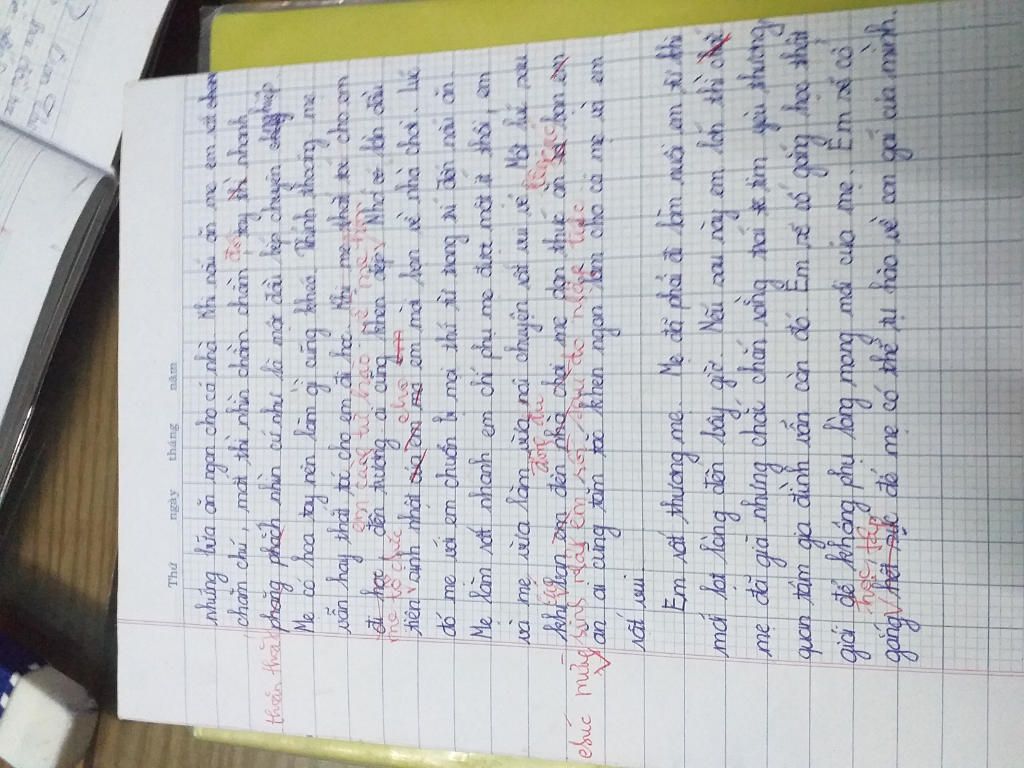 Thứ ngày tháng năm
những bữa ăn ngon cho cả nhà. Khi nấu ăn mẹ em rất
chăm chú, mắt thì nhìn chằm chằm đôi tay thì nhanh
thuần thục
phăng phách nhìn cứ như là một đầu bếp chuyên nghiệp
Mẹ có hoa tay nên làm gì cũng khéo. Thỉnh thoảng mẹ
vẫn hay thắt tóc cho em đi học. Khi mẹ thắt tóc cho em
em cũng tự hào về mẹ lắm
đi học đến trường ai cũng khen đẹp. Nhớ có lần đầu
mẹ tổ chức cho
tiên sinh nhật của em mà em mời bạn về nhà chơi. Lúc
đó mẹ với em chuẩn bị mọi thứ từ trang trí đến nấu ăn.
Mẹ làm rất nhanh em chỉ phụ mẹ đưa một ít thôi, em
và mẹ vừa làm vừa nói chuyện rất vui vẻ. Một lúc sau
đông đủ
khi bạn em đến nhà chơi mẹ dọn thức ăn bạn em
chúc mừng sinh nhật em sôi
ăn ai cũng tấm tắc khen ngon làm cho cả mẹ và em
rất vui.
Em rất thương mẹ. Mẹ đã phải đi làm nuôi em từ khi
mới lọt lòng đến bây giờ. Nếu sau này em lớn thì
mẹ đã già nhưng chắc chắn rằng trái tim yêu thương
quan tâm gia đình vẫn còn đó. Em sẽ cố gắng học thật
giỏi để không phụ lòng mong mỏi của mẹ. Em sẽ cố
học tập
gắng hết sức để mẹ có thể tự hào về con gái của mình.